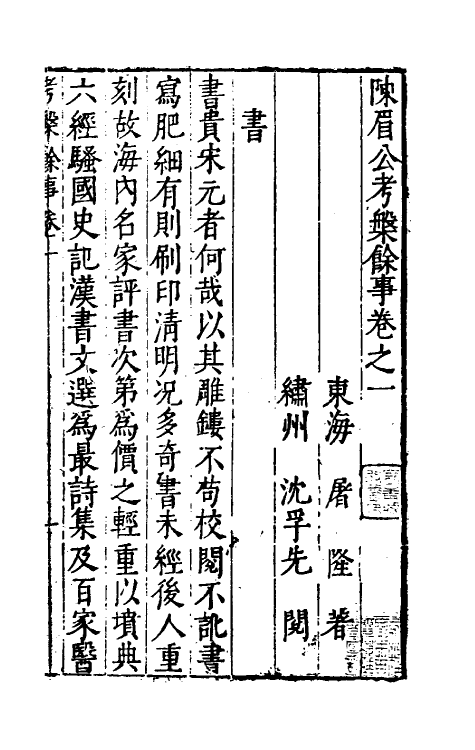 陳眉公考槃餘事卷之一
東海 屠隆 著
繡州 沈孚先 閱
書
書貴宋元者何哉以其雕鏤不苟校閱不訛書
寫肥細有則刷印清明况多奇書未經後人重
刻故海內名家評書次第爲價之輕重以墳典
六經騷國史記漢書文選爲最詩集及百家醫
考槃餘事卷一 一